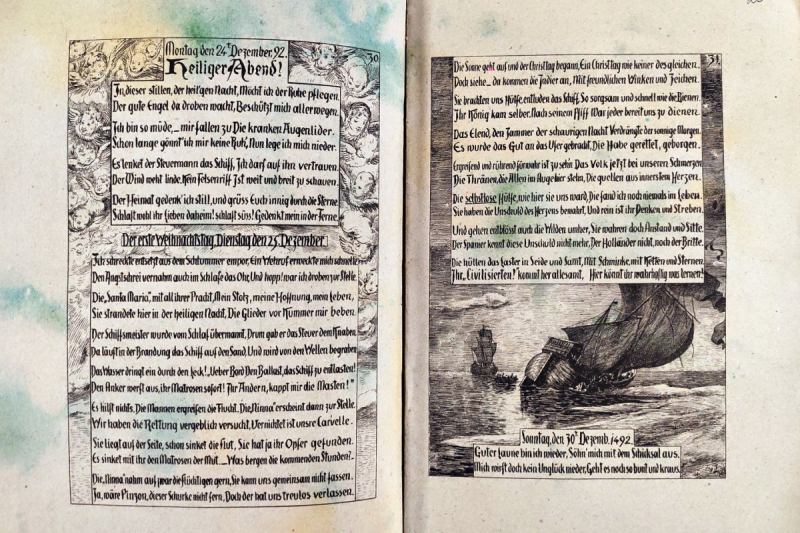 Montag den 24t Dezember. 92.
30
Heiliger Abend!
In dieser stillen, der heil'gen Nacht, Möcht ich der Ruhe pflegen.
Der gute Engel da droben wacht, Beschützt mich aller wegen.
Ich bin so müde, – mir fallen zu Die kranken Augenlider.
Schon lange gönnt' ich mir keine Ruh', Nun lege ich mich nieder.
Es lenket der Steuermann das Schiff, Ich darf auf ihn vertrauen.
Der Wind weht linde. Kein Felsenriff Ist weit und breit zu schauen.
Der Heimat gedenk' ich still, und grüss Euch innig durch die Sterne.
Schlaft wohl ihr Lieben daheim! schlaft süss! Gedenkt mein in der Ferne.
Der erste Weihnachtstag, Dienstag den 25. Dezember.
Ich schreckte entsetzt aus dem Schlummer empor, Ein Wehruf erweckte mich schnelle
Den Angstschrei vernahm auch im Schlafe das Ohr, Und hopp! war ich droben zur Stelle.
Die „Santa Maria", mit all ihrer Pracht, Mein Stolz, meine Hoffnung, mein Leben,
Sie strandete hier in der heiligen Nacht, Die Glieder vor Kummer mir beben.
Der Schiffsmeister wurde vom Schlaf übermannt, Drum gab er das Steuer dem Knaben.
Da läuft in der Brandung das Schiff auf den Sand, Und wird von den Wellen begraben
Das Wasser dringt ein durch den Leck! „Ueber Bord Den Ballast, das Schiff zu entlasten!
Den Anker werft aus, ihr Matrosen sofort! Ihr Andern, kappt mir die Masten!"
Es hilft nichts. Die Mannen ergreifen die Flucht. Die „Ninna" erscheint dann zur Stelle.
Wir haben die Rettung vergeblich versucht, Vernichtet ist unsre Carvelle.
Sie liegt auf der Seite, schon sinket die Flut, Sie hat ja ihr Opfer gefunden.
Es sinket mit ihr den Matrosen der Mut. – Was bergen die kommenden Stunden?
Die „Ninna" nahm auf zwar die flüchtigen gern, Sie kann uns gemeinsam nicht fassen.
Ja, wäre Pinzon, dieser Schurke nicht fern, Doch der hat uns treulos verlassen.
31
Die Sonne geht auf und der Christtag begann, Ein Christtag wie keiner des gleichen.
Doch siehe – da kommen die Indier an, Mit freundlichen Winken und Zeichen.
Sie brachten uns Hülfe, entluden das Schiff. So sorgsam und schnell wie die Bienen.
Ihr König kam selber. Nach seinem Pfiff War jeder bereit uns zu dienen.
Das Elend, den Jammer der schaurigen Nacht Verdrängte der sonnige Morgen.
Es wurde das Gut an das Ufer gebracht, Die Habe gerettet, geborgen.
Ergreifend und rührend fürwahr ist zu sehn Das Volk jetzt bei unseren Schmerzen
Die Thränen, die Allen im Auge hier stehn, Die quellen aus innerstem Herzen.
Die selbstlose Hülfe, wie hier sie uns ward, Die fand ich noch niemals im Leben.
Sie haben die Unschuld des Herzens bewahrt, Und rein ist ihr Denken und Streben.
Und gehen entblösst auch die Wilden umher, Sie wahren doch Anstand und Sitte.
Der Spanier kennt diese Unschuld nicht mehr, Der Holländer nicht, noch der Britte.
Die hüllen das Laster in Seide und Samt, Mit Schminke, mit Ketten und Sternen.
Ihr „Civilisierten!" kommt her allesamt, Hier könnt ihr wahrhaftig was lernen!
Sonntag, den 30t Dezemb. 1492.
Guter Laune bin ich wieder, Söhn' mich mit dem Schicksal aus.
Mich wirft doch kein Unglück nieder, Geht es noch so bunt und kraus.